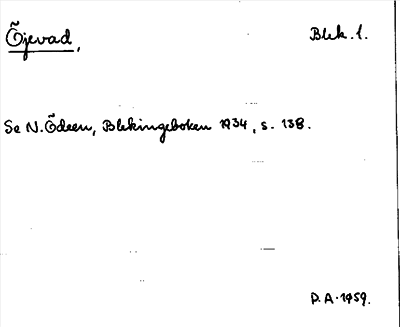 Öjevad, Blek. l.
Se N. Ödeen, Blekingeboken 1934, s. 138.
P.A. 1959.